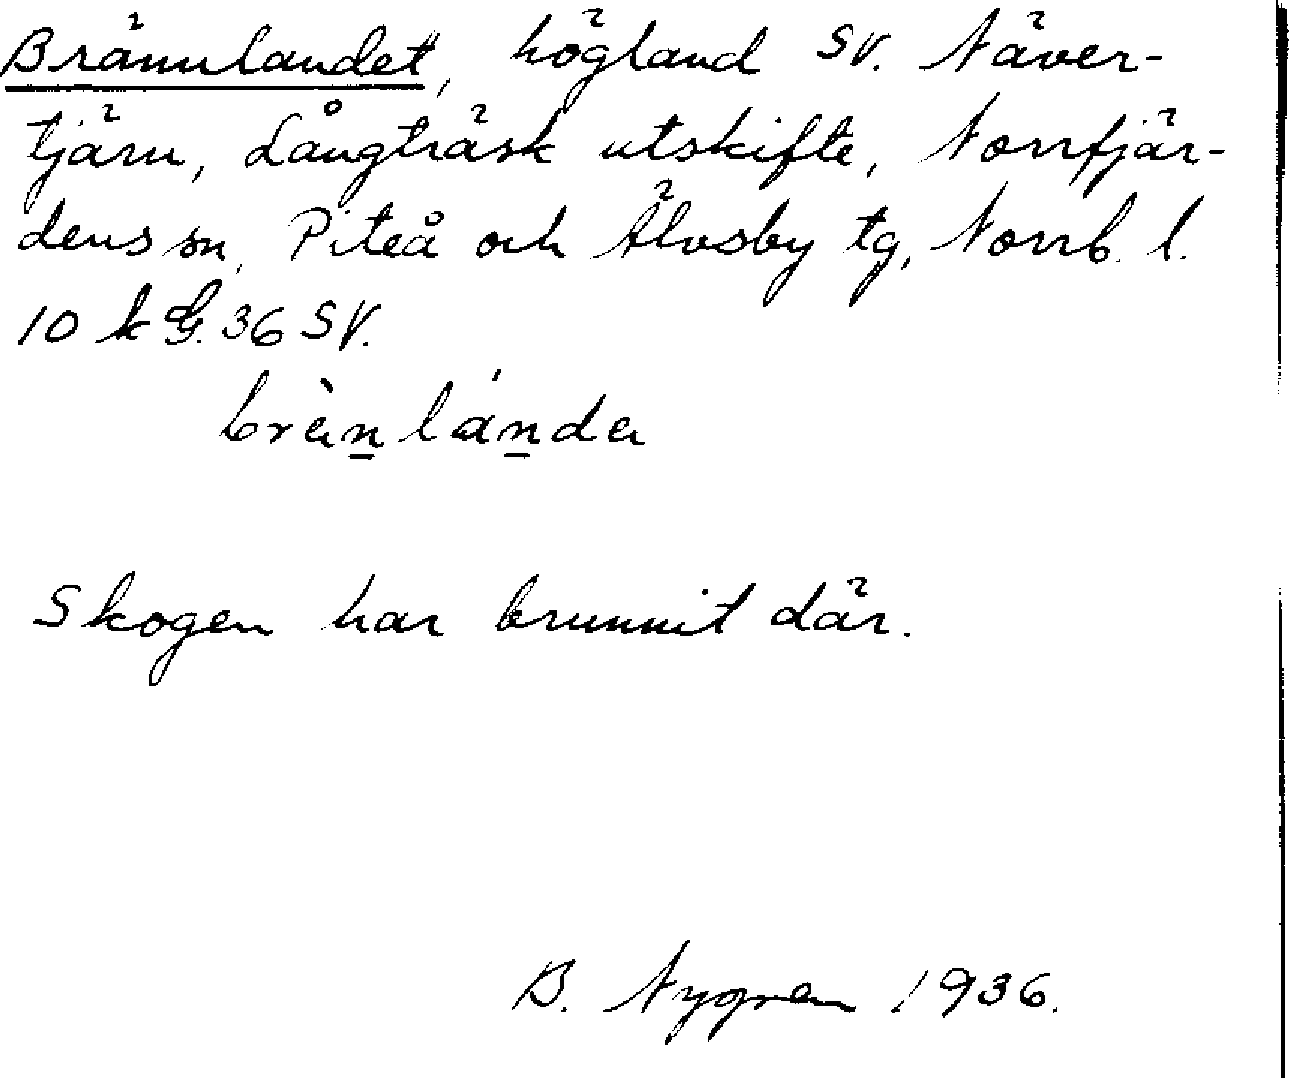 Brännlandet, högland SV. Näver-
tjärn, Långträsk utskifte, Norrfjär-
dens sn, Piteå och Älvsby tg, Norrb. l.
10 k G. 36 SV.
brènlánda
Skogen har brunnit där.
B. Nygren 1936.